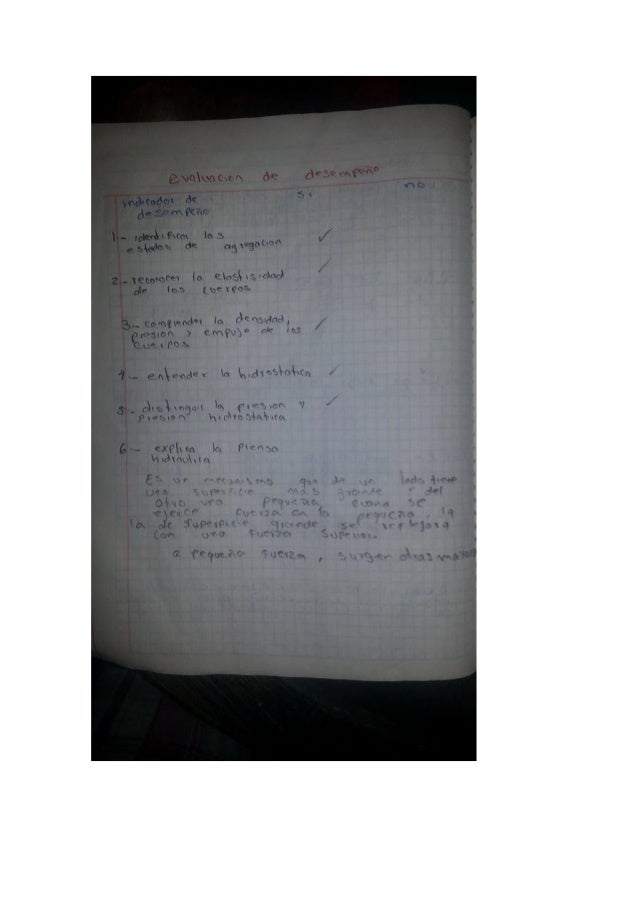 evaluacion de desempeño
indicador de si no
desempeño
1- identificar los
estados de agregacion
2- reconocer la elastisidad
de los cuerpos
3- comprender la densidad,
presion y empuje de los
cuerpos
4- entender la hidrostatica
5- distinguir la presion y
presion hidrostatica
6- explica la prensa
hidraulica
Es un mecanismo que de un lado tiene
una superficie mas grande y del
otro una pequeña, cuando se
ejerce fuerza en la pequeña, la
la de superficie grande se reflejara
con una fuerza superior.
a pequeña fuerza, surgen otras